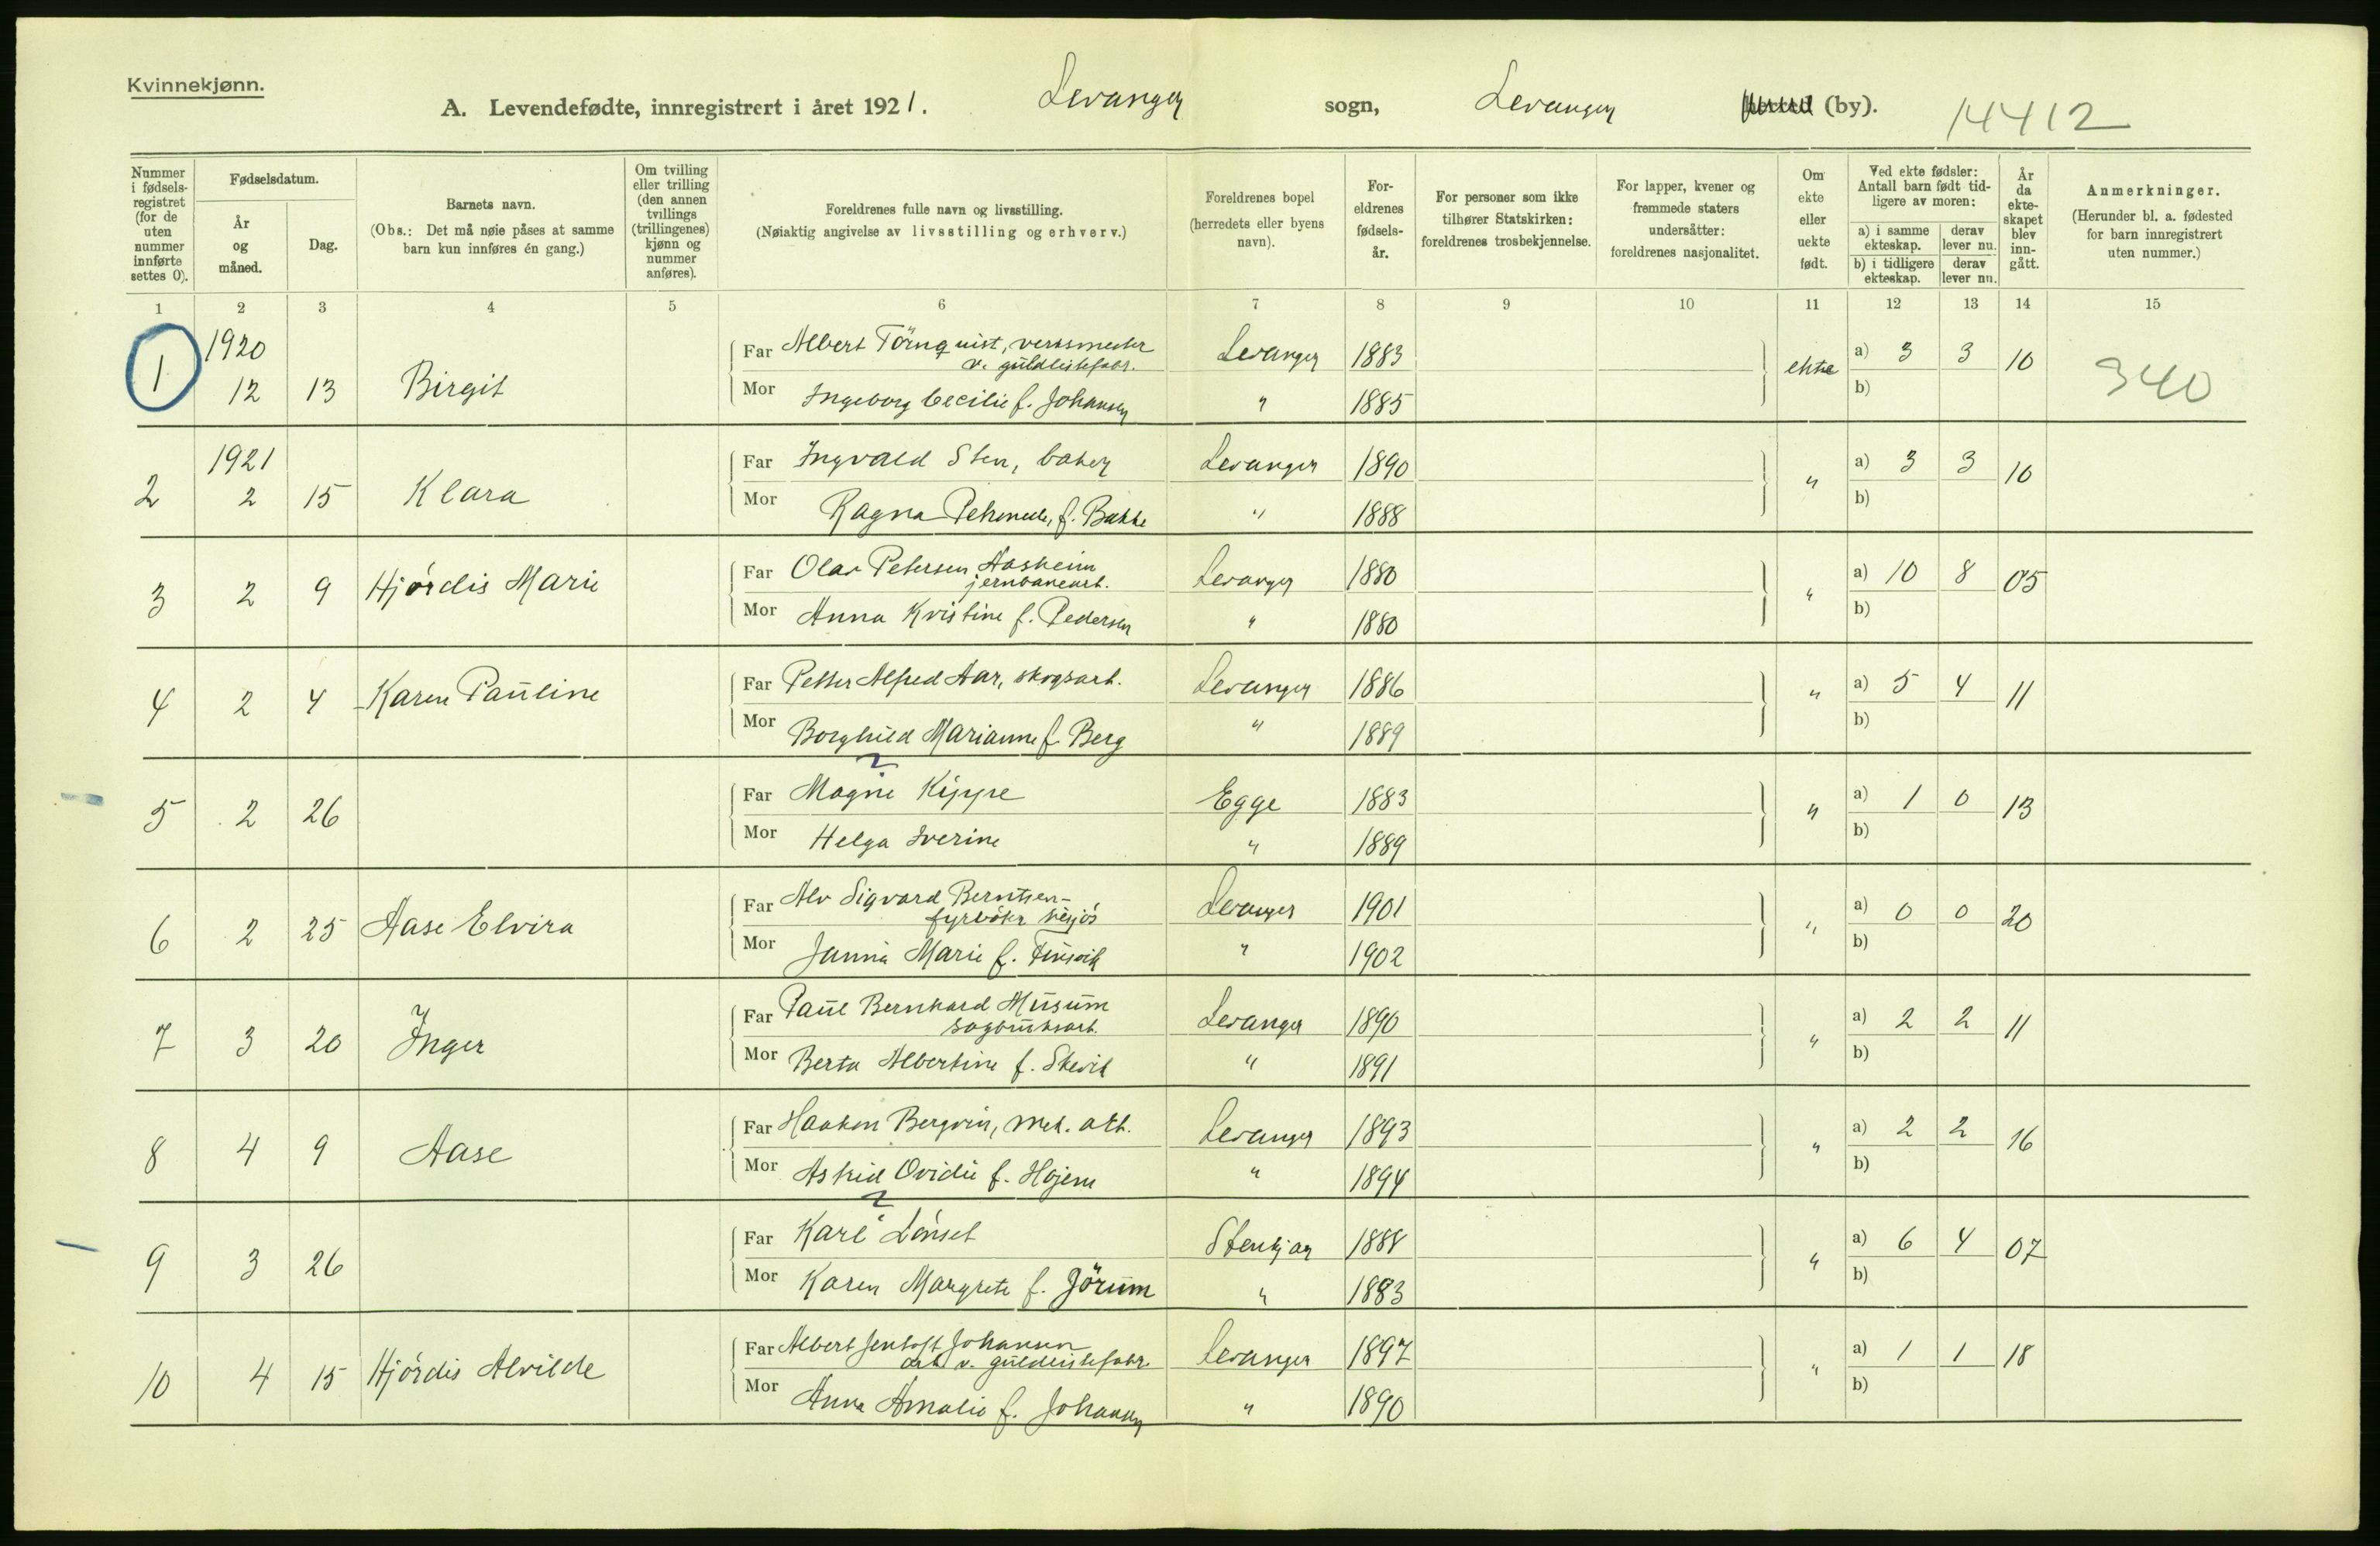 Kvinnekjønn.
A. Levendefødte, innregistrert i året 1921. Levanger sogn, Levanger herred (by). 14412
Nummer i fødsels-registret (for de uten nummer innførte settes 0).
Fødselsdatum.
År og måned.
Dag.
Barnets navn.
(Obs.: Det må nøie påses at samme barn kun innføres én gang.)
Om tvilling eller trilling (den annen tvillings (trillingenes) kjønn og nummer anføres).
Foreldrenes fulle navn og livsstilling.
(Nøiaktig angivelse av livsstilling og erhverv.)
Foreldrenes bopel (herredets eller byens navn).
For-eldrenes fødsels-år.
For personer som ikke tilhører Statskirken: foreldrenes trosbekjennelse.
For lapper, kvener og fremmede staters undersåtter: foreldrenes nasjonalitet.
Om ekte eller uekte født.
Ved ekte fødsler: Antall barn født tid-ligere av moren:
a) i samme ekteskap. derav lever nu.
b) i tidligere ekteskap. derav lever nu.
År da ekte-skapet blev inn-gått.
Anmerkninger.
(Herunder bl. a. fødested for barn innregistrert uten nummer.)
1 2 3 4 5 6 7 8 9 10 11 12 13 14 15
1 1920 12 13 Birgit
Far Albert Törnquist, verksmester v. guldlistefabr. Levanger 1883 ekte a) 3 3 10 340
Mor Ingeborg Cecilie f. Johansen " 1885 b)
2 1921 2 15 Klara
Far Ingvald Sten, baker Levanger 1890 " a) 3 3 10
Mor Ragna f. Bakke " 1888 b)
3 2 9 Hjórdis Marie
Far Olav Petersen Aasheim jernbanearb. Levanger 1880 " a) 10 8 05
Mor Anna Kristine f. Pedersen " 1880 b)
4 2 4 Karen Pauline
Far Petter Alfred Aar, skogsarb. Levanger 1886 " a) 5 4 11
Mor Borghild Marianne f. Berg " 1889 b)
5 2 26
Far Magne Kippe Egge 1883 " a) 1 0 13
Mor Helga Iverine " 1889 b)
6 2 25 Aase Elvira
Far Alv Sigvard Berntsen fyrbøter Levanger 1901 " a) 0 0 20
Mor Janna Marie f. " 1902 b)
7 3 20 Inger
Far Paul Bernhard Musum sagbruksarb. Levanger 1890 " a) 2 2 11
Mor Berta Albertine f. " 1891 b)
8 4 9 Aase
Far Haakon Bergvin, mek. arb. Levanger 1893 " a) 2 2 16
Mor Astrid Ovidie f. Hojem " 1894 b)
9 3 26
Far Karl Lönset Stenkjær 1888 " a) 6 4 07
Mor Karen Margrete f. Jörum " 1883 b)
10 4 15 Hjórdis Alvilde
Far Albert Jentoft Johansen arb. v. guldlistefabr. Levanger 1897 " a) 1 1 18
Mor Anna Amalie f. Johansen " 1890 b)